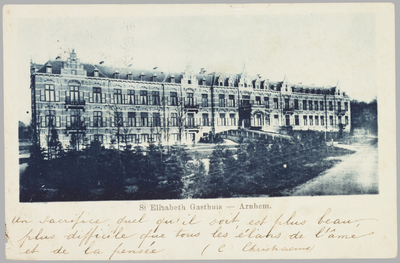 St Elisabeth Gasthuis — Arnhem.
Un sacrifice, quel qu'il soit est plus beau,
plus difficile que tous les élans de l'âme
et de la pensée (